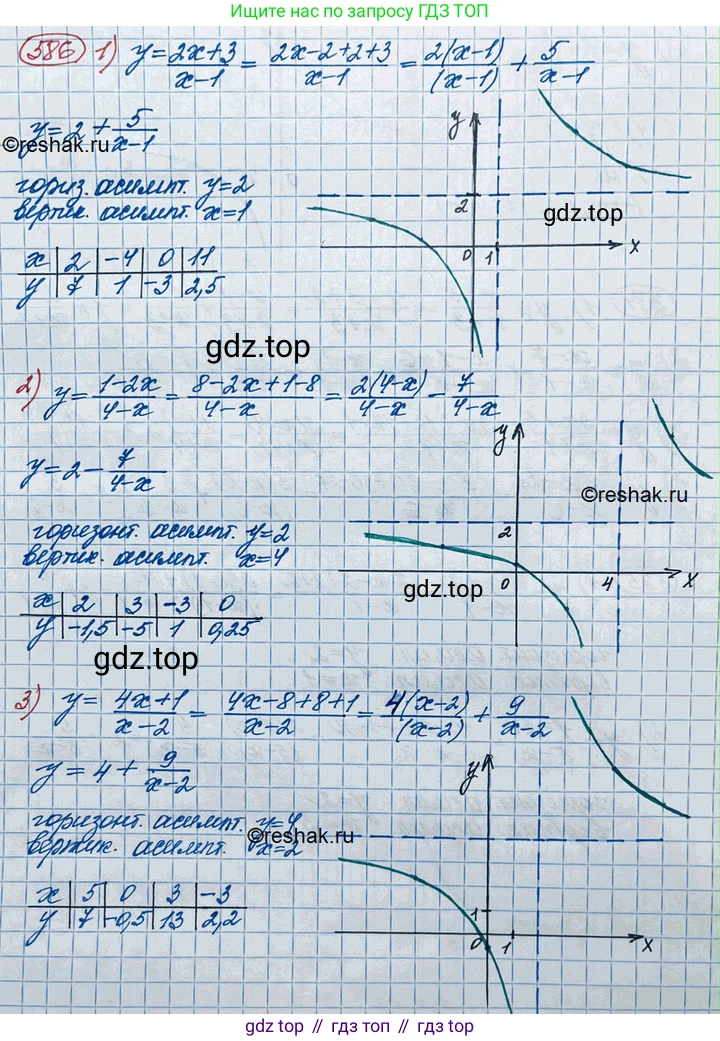 больше решений по запросу ГДЗ ТОП
586 1) y = 2x+3/x-1 = 2x-2+2+3/x-1 = 2(x-1)/(x-1) + 5/x-1
y = 2 + 5/x-1
©reshak.ru
гориз. асимпт. y=2
вертик. асимпт. x=1
x 2 -4 0 11
y 7 1 -3 2,5
y
2
0 1 x
gdz.top
gdz.top
2) y = 1-2x/4-x = 8-2x+1-8/4-x = 2(4-x)/4-x - 7/4-x
y = 2 - 7/4-x
горизонт. асимпт. y=2
вертик. асимпт. x=4
x 2 3 -3 0
y -1,5 -5 1 0,25
y
2
0 4 x
©reshak.ru
gdz.top
gdz.top
3) y = 4x+1/x-2 = 4x-8+8+1/x-2 = 4(x-2)/(x-2) + 9/x-2
y = 4 + 9/x-2
горизонт. асимпт. y=4
вертик. асимпт. x=2
©reshak.ru
x 5 0 3 -3
y 7 -0,5 13 2,2
y
1
0 1 x
gdz.top // гдз топ // гдз.top